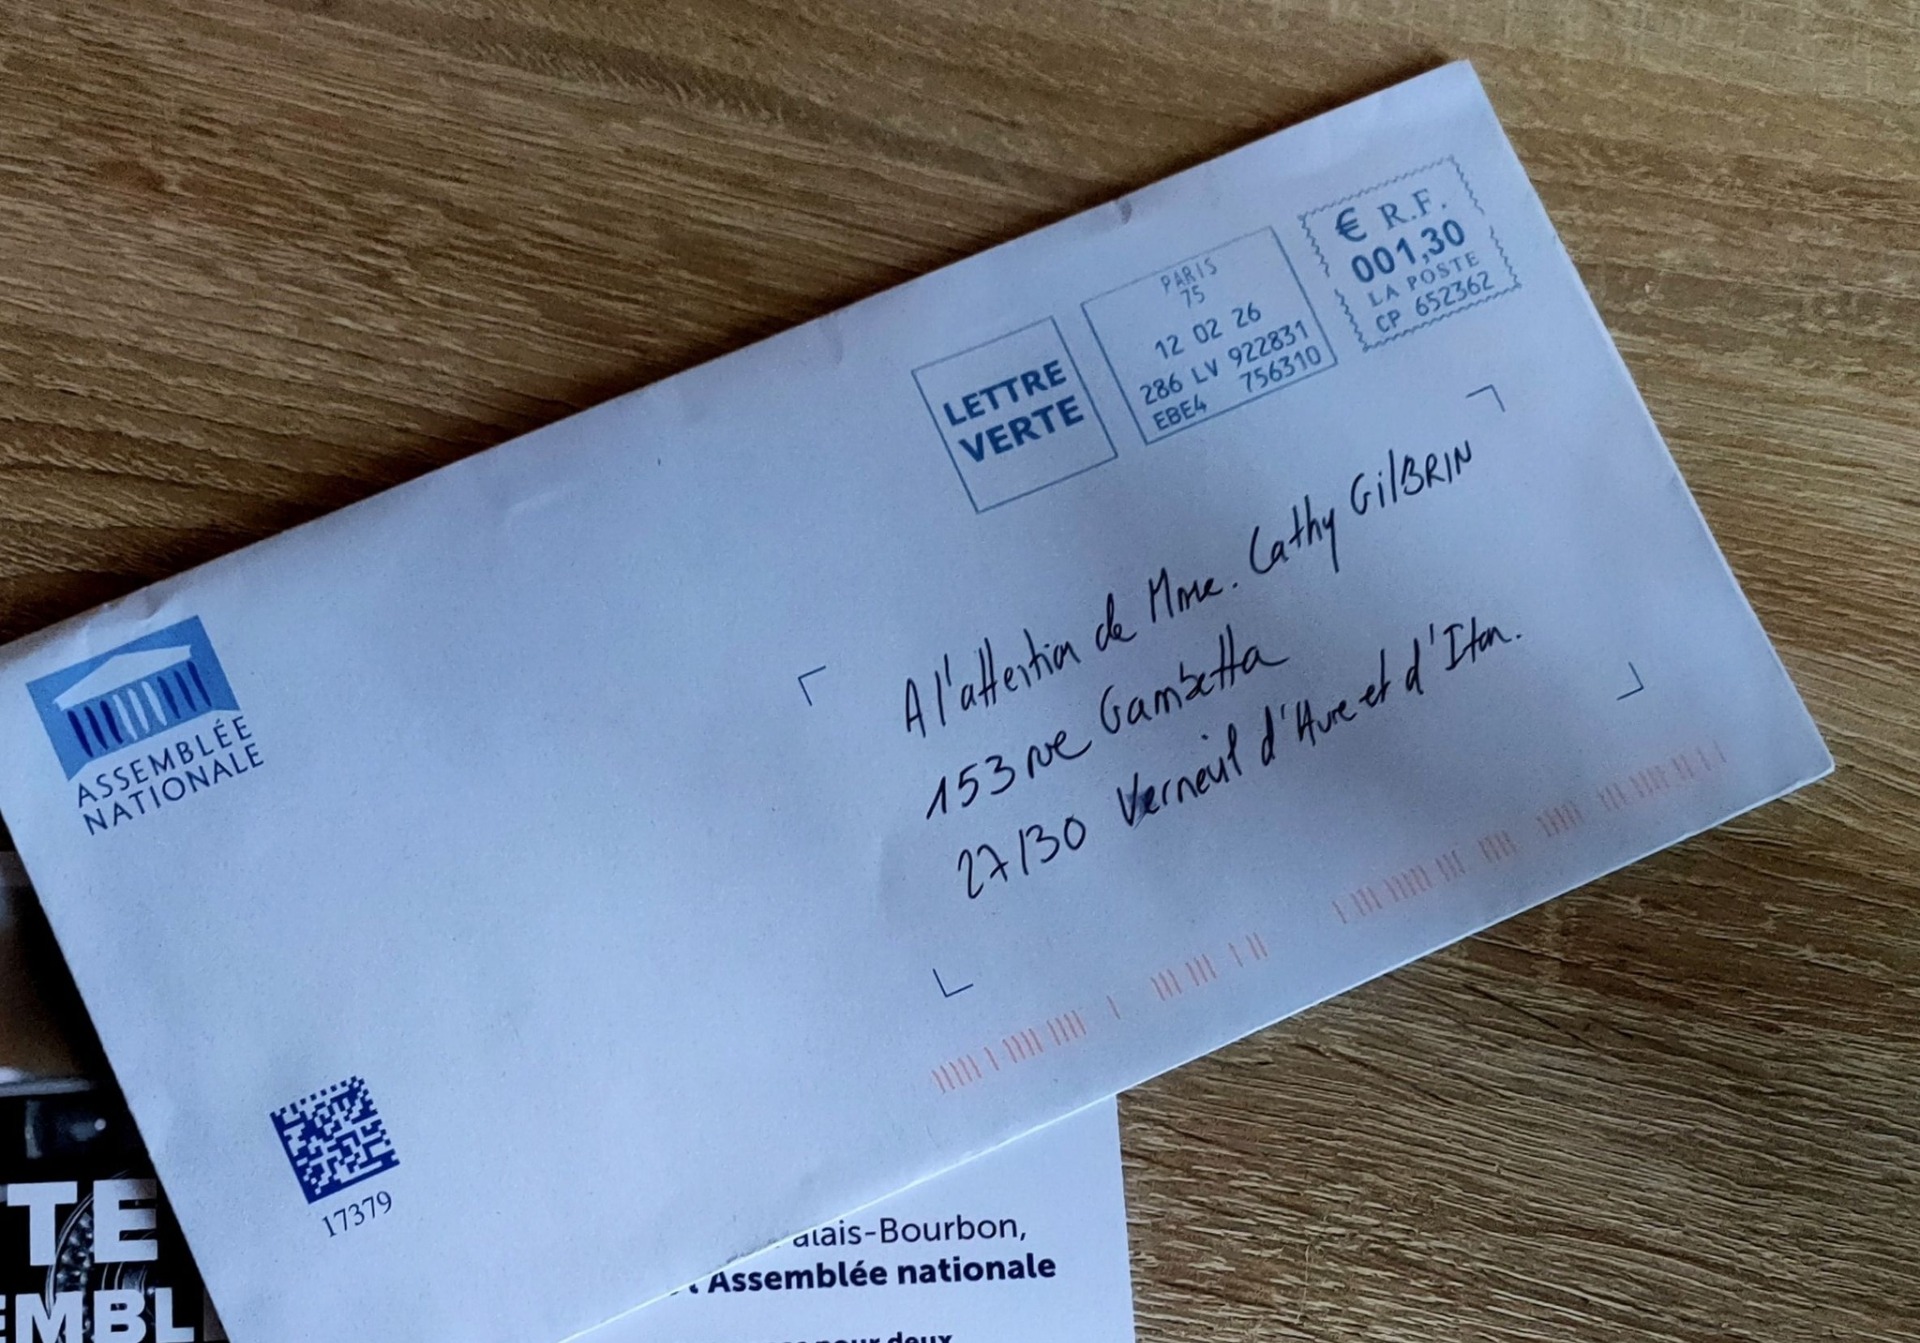 € R.F.
001,30
LA POSTE
CP 652362
PARIS
75
12 02 26
286 LV 922831
EBE4 756310
LETTRE
VERTE
A l'attention de Mme. Cathy GilBRIN
153 rue Gambetta
27130 Verneuil d'Avre et d'Iton.
ASSEMBLÉE
NATIONALE
17379
TE
EMBL
alais-Bourbon,
l'Assemblée nationale
pour deux